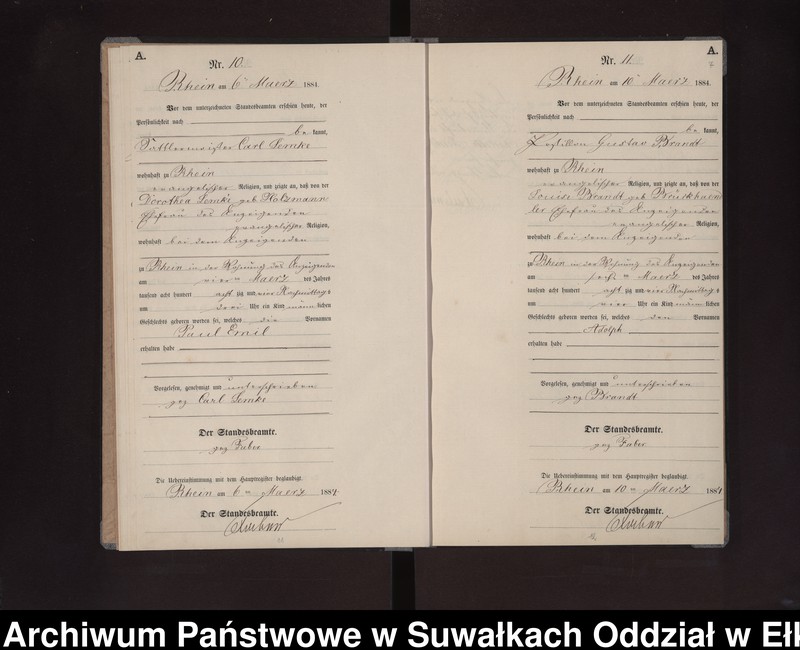 A.
Nr. 10.
Rhein am 6ten Maerz 1884.
Vor dem unterzeichneten Standesbeamten erschien heute, der
Persönlichkeit nach
be kannt,
Sattlermeister Carl Lemke
wohnhaft zu Rhein
evangelischer Religion, und zeigte an, daß von der
Dorothea Lemke geb.
Ehefrau des Anzeigenden
evangelischer Religion,
wohnhaft bei dem Anzeigenden
zu Rhein in der Wohnung des Anzeigenden
am vierten Maerz des Jahres
tausend acht hundert acht zig und vier Nachmittags
um drei Uhr ein Kind männlichen
Geschlechts geboren worden sei, welches die Vornamen
Paul Emil
erhalten habe
Vorgelesen, genehmigt und unterschrieben
gez Carl Lemke
Der Standesbeamte.
gez Faber
Die Uebereinstimmung mit dem Hauptregister beglaubigt.
Rhein am 6ten Maerz 1884.
Der Standesbeamte.
A.
Nr. 11.
Rhein am 10ten Maerz 1884.
Vor dem unterzeichneten Standesbeamten erschien heute, der
Persönlichkeit nach
be kannt,
Gustav Brandt
wohnhaft zu Rhein
evangelischer Religion, und zeigte an, daß von der
Louise Brandt geb.
Ehefrau des Anzeigenden
evangelischer Religion,
wohnhaft bei dem Anzeigenden
zu Rhein in der Wohnung des Anzeigenden
am sechsten Maerz des Jahres
tausend acht hundert acht zig und vier Nachmittags
um vier Uhr ein Kind männlichen
Geschlechts geboren worden sei, welches den Vornamen
Adolph
erhalten habe
Vorgelesen, genehmigt und unterschrieben
gez Brandt
Der Standesbeamte.
gez Faber
Die Uebereinstimmung mit dem Hauptregister beglaubigt.
Rhein am 10ten Maerz 1884
Der Standesbeamte.
Archiwum Państwowe w Suwałkach Oddział w Ełk